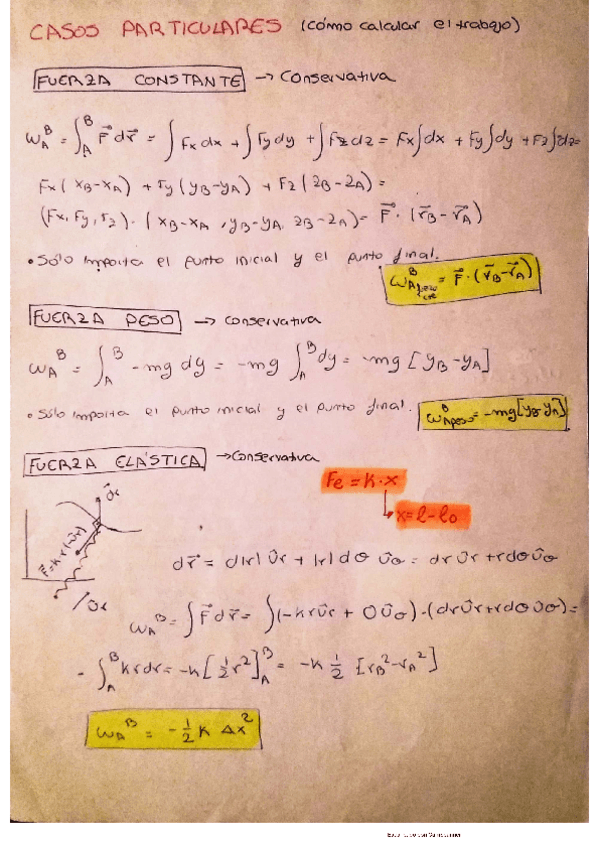 CASOS PARTICULARES (cómo calcular el trabajo)
FUERZA CONSTANTE → Conservativa
W_A^B = ∫_A^B F⃗ dr⃗ = ∫Fx dx + ∫Fy dy + ∫Fz dz = Fx∫dx + Fy∫dy + Fz∫dz =
Fx(xB-xA) + Fy(yB-yA) + Fz(zB-zA) =
(Fx, Fy, Fz)·(xB-xA, yB-yA, zB-zA) = F⃗·(r⃗B-r⃗A)
• Sólo importa el punto inicial y el punto final.
W_A^B = F⃗·(r⃗B-r⃗A)
FUERZA PESO → Conservativa
W_A^B = ∫_A^B -mg dy = -mg ∫_A^B dy = -mg [yB-yA]
• Sólo importa el punto inicial y el punto final.
W_A^B peso = -mg[yB-yA]
FUERZA ELÁSTICA → Conservativa
Fe = K·x
x = l - l0
Ûr
F⃗=Kr(-Ûr)
Ûr
dr⃗ = d|r| Ûr + |r| dθ Ûθ = dr Ûr + rdθ Ûθ
W_A^B = ∫F⃗ dr⃗ = ∫(-KrÛr + 0Ûθ)·(drÛr+rdθÛθ) =
- ∫_A^B Krdr = -K[½r²]_A^B = -K ½ [rB²-rA²]
W_A^B = -½ K Δx²